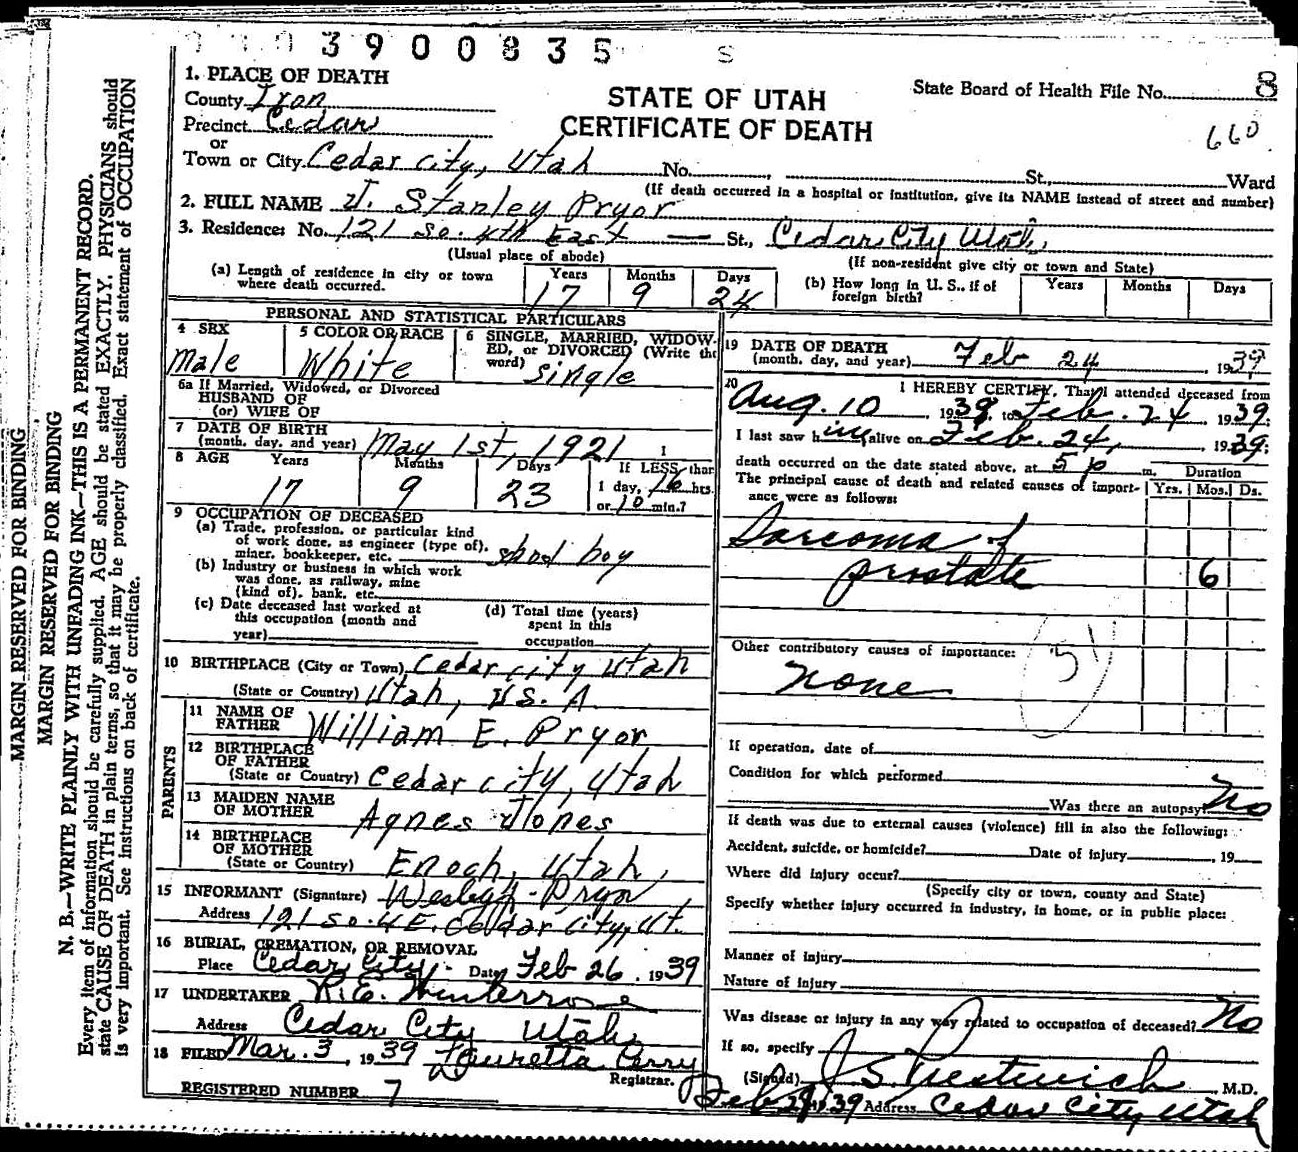 3900835 S
1. PLACE OF DEATH
County Iron
Precinct Cedar
or
Town or City Cedar City, Utah No. , St., Ward
STATE OF UTAH
CERTIFICATE OF DEATH
State Board of Health File No. 8
660
(If death occurred in a hospital or institution, give its NAME instead of street and number)
2. FULL NAME J. Stanley Pryor
3. Residence: No. 121 So. 4th East — St., Cedar City Utah.
(Usual place of abode) (If non-resident give city or town and State)
(a) Length of residence in city or town where death occurred. Years 17 Months 9 Days 24
(b) How long in U. S., if of foreign birth? Years Months Days
PERSONAL AND STATISTICAL PARTICULARS
4 SEX Male
5 COLOR OR RACE White
6 SINGLE, MARRIED, WIDOWED, or DIVORCED (Write the word) single
6a If Married, Widowed, or Divorced
HUSBAND OF
(or) WIFE OF
7 DATE OF BIRTH
(month, day, and year) May 1st, 1921
8 AGE Years 17 Months 9 Days 23 If LESS than 1 day, 16 hrs. or 10 min.?
9 OCCUPATION OF DECEASED
(a) Trade, profession, or particular kind of work done, as engineer (type of), miner, bookkeeper, etc. school boy
(b) Industry or business in which work was done, as railway, mine (kind of), bank, etc.
(c) Date deceased last worked at this occupation (month and year)
(d) Total time (years) spent in this occupation
10 BIRTHPLACE (City or Town) Cedar City Utah
(State or Country) Utah, U.S.A.
PARENTS
11 NAME OF FATHER William E. Pryor
12 BIRTHPLACE OF FATHER
(State or Country) Cedar City, Utah
13 MAIDEN NAME OF MOTHER Agnes Jones
14 BIRTHPLACE OF MOTHER
(State or Country) Enoch, Utah,
15 INFORMANT (Signature) Wesley Pryor
Address 121 So. 4 E. Cedar City, Ut.
16 BURIAL, CREMATION, OR REMOVAL
Place Cedar City. Date Feb 26. 1939
17 UNDERTAKER R.E. Winterrose
Address Cedar City Utah
18 FILED Mar. 3, 1939 Lauretta Perry
Registrar.
REGISTERED NUMBER 7
19 DATE OF DEATH
(month, day, and year) Feb 24, 1939
20 I HEREBY CERTIFY, That I attended deceased from
Aug. 10, 1938, to Feb. 24 1939.
I last saw him alive on Feb. 24, 1939.
death occurred on the date stated above, at 5 p m.
The principal cause of death and related causes of importance were as follows:
Duration
Yrs. Mos. Ds.
Sarcoma of
prostate 6
Other contributory causes of importance:
51
none
If operation, date of
Condition for which performed
Was there an autopsy? No
If death was due to external causes (violence) fill in also the following:
Accident, suicide, or homicide? Date of injury , 19
Where did injury occur?
(Specify city or town, county and State)
Specify whether injury occurred in industry, in home, or in public place:
Manner of injury
Nature of injury
Was disease or injury in any way related to occupation of deceased? No
If so, specify
(Signed) J S Prestwich M.D.
Address Cedar City Utah
MARGIN RESERVED FOR BINDING
MARGIN RESERVED FOR BINDING
N. B.—WRITE PLAINLY WITH UNFADING INK—THIS IS A PERMANENT RECORD.
Every item of information should be carefully supplied. AGE should be stated EXACTLY. PHYSICIANS should
state CAUSE OF DEATH in plain terms, so that it may be properly classified. Exact statement of OCCUPATION
is very important. See instructions on back of certificate.